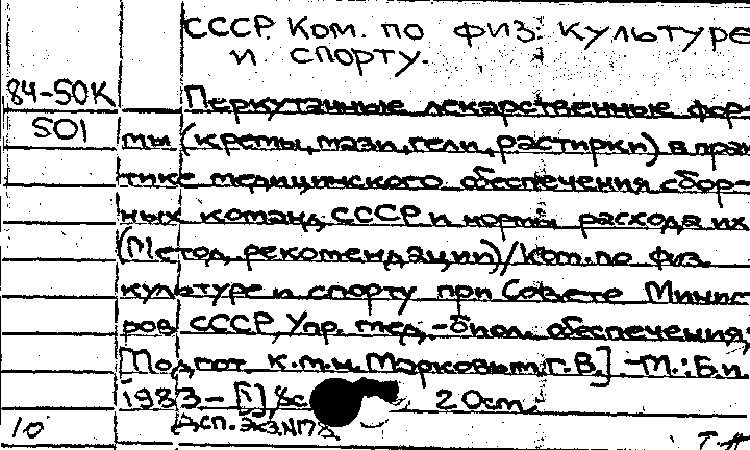 СССР. Ком. по физ. культуре
и спорту.
84-50К
Перкутанные лекарственные фор-
501
мы (кремы, мази, гели, растирки) в прак
тике медицинского обеспечения сбор-
ных команд СССР и нормы расхода их
(Метод. рекомендации)/Ком. по физ.
культуре и спорту при Совете Минис
ров СССР, Упр. мед.-биол. обеспечения;
[Подгот. к.м.н. Марковым Г.В.] -М.: Б.и.
1983 - 20см.
10
Дсп.